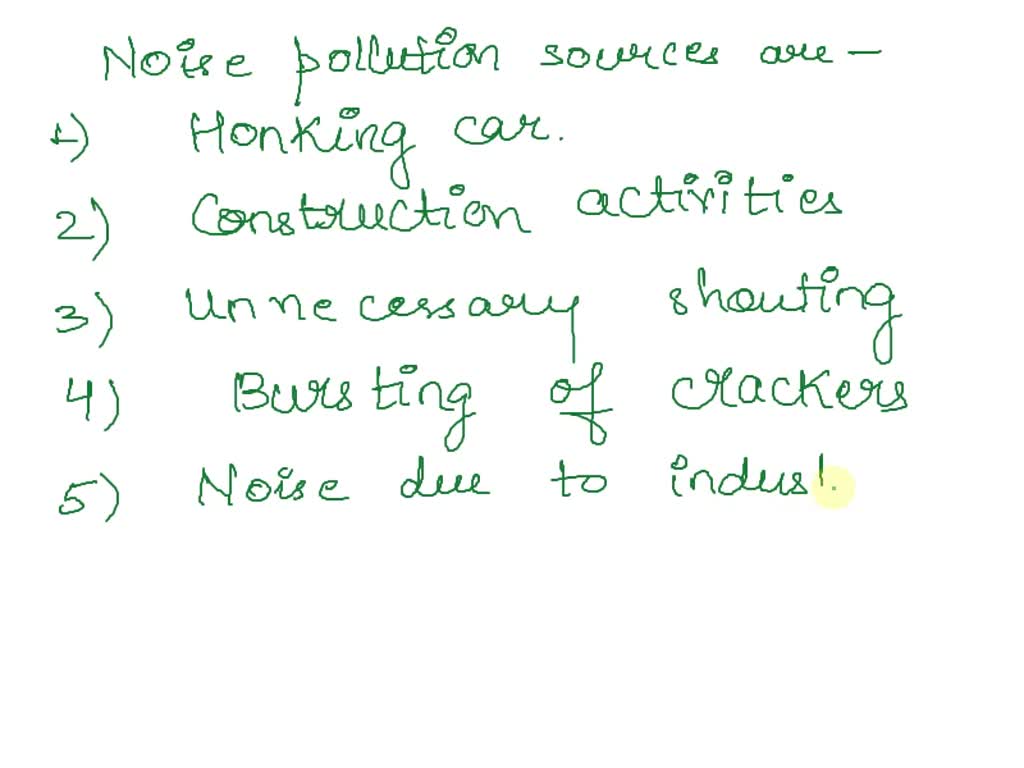 Noise pollution sources are -
1) Honking car.
2) Construction activities
3) Unnecessary shouting
4) Bursting of crackers
5) Noise due to indust